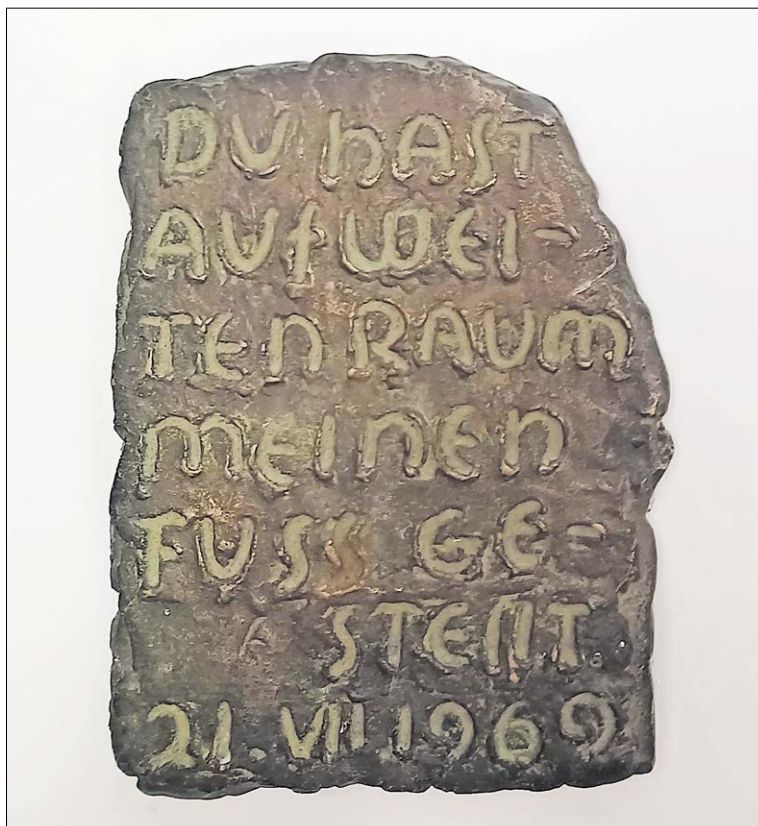 DU HAST
AUF WEI-
TEN RAUM
MEINEN
FUSS GE-
STELLT
21. VII 1969